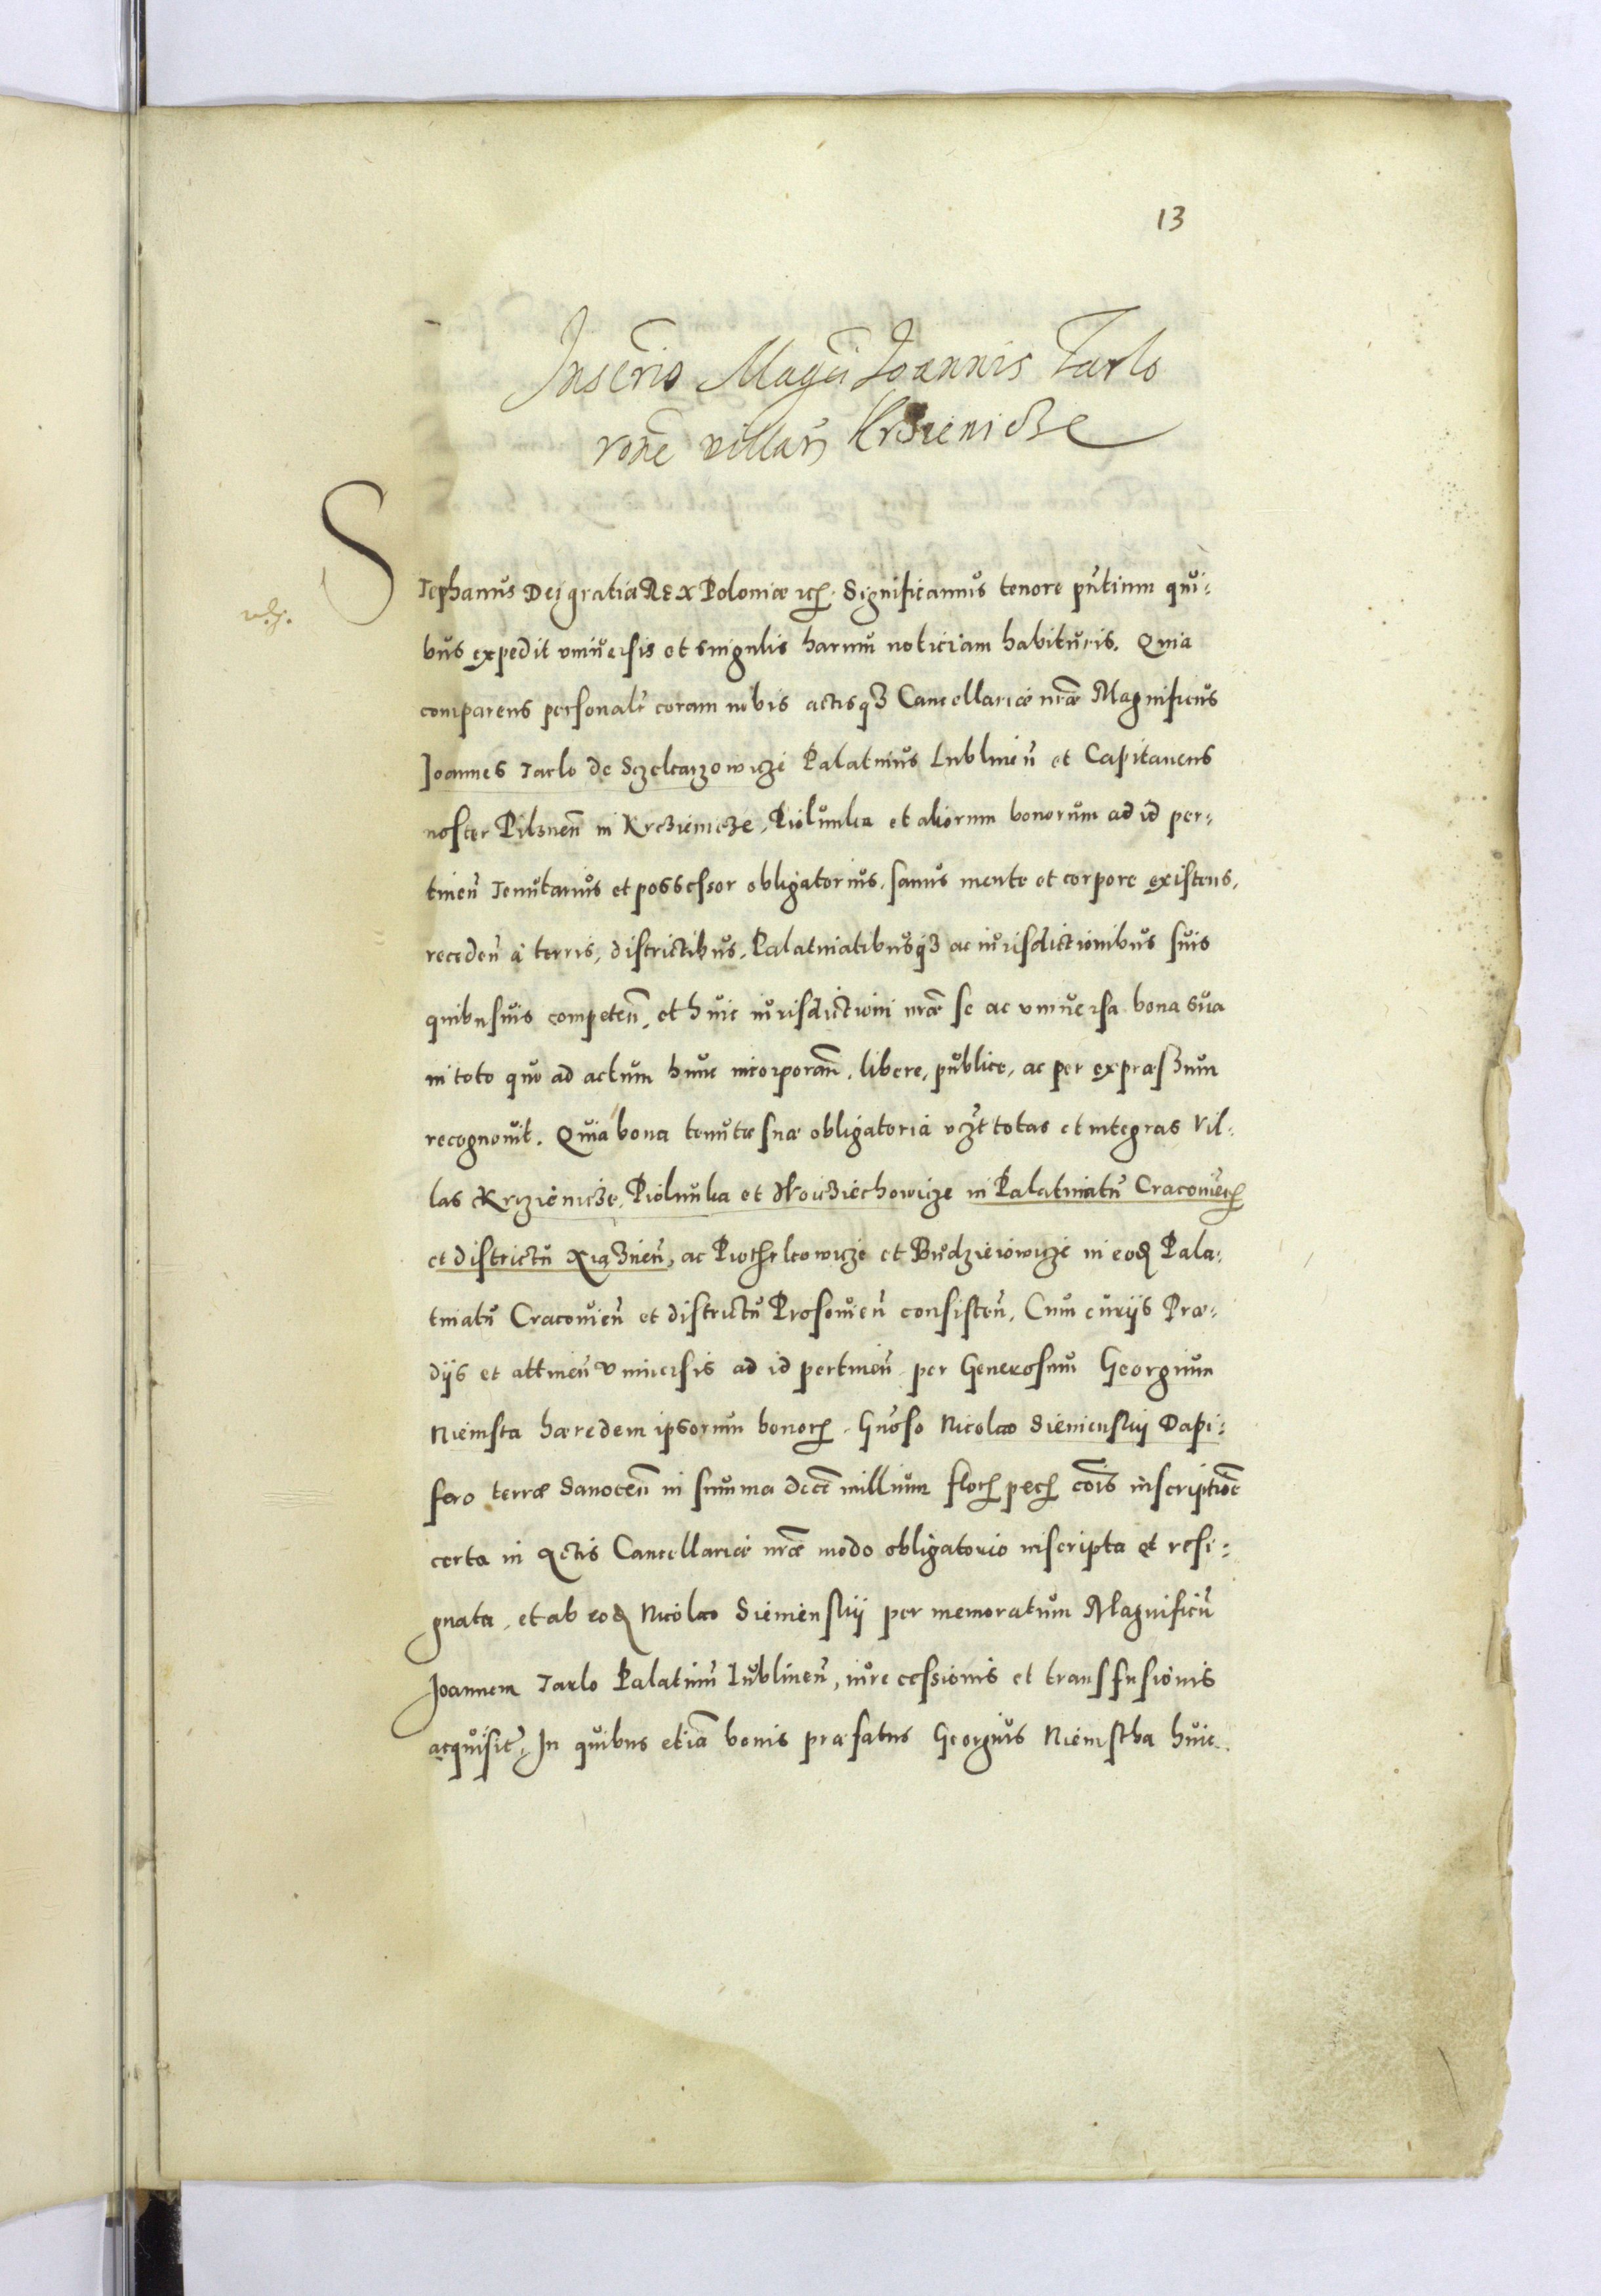 13
Inscrio Magci Joannis Tarlo
rone villarum Krzenicze
Stephanus Dei gratia Rex Poloniæ etc. Significamus tenore pntium qui-
bus expedit vniuersis et singulis harum noticiam habituris. Quia
comparens personalr coram nobis actisqз Cancellariæ nræ Magnificus
Joannes Tarlo de Sczekarzowicze Palatinus Lublinen et Capitaneus
noster Pilsnen in Krczienicze, Piolunka et aliorum bonorum ad id per-
tinen Tenutarius et possessor obligatorius, sanus mente et corpore existens,
receden à terris, districtibus, Palatinatibusqз ac iurisdictionibus suis
quibusuis competen, et huic iurisdictioni nræ se ac vniuersa bona sua
in toto quo ad actum hunc incorporan, libere, publice, ac per expraessum
recognouit. Quia bona tenutæ suæ obligatoria vzt totas et integras Vil-
las Krczienicze, Piolunka et Woicziechowicze in Palatinatu Cracouien
et districtu Xiąznen, ac et Budzieiowicze in eod Pala-
tinatu Cracouien et districtu Prosouien consisten, Cum curijs Præ-
dijs et attinen vniuersis ad id pertinen per Generosum Georgium
Niemsta hæredem ipsorum bonor. Gnoso Nicolao Sieniensky Dapi-
fero terræ Sanocen in summa dece millium flor pec cois inscriptioe
certa in actis Cancellariæ nræ modo obligatorio inscripta et resi-
gnata, et ab eod Nicolao Sieniensky per memoratum Magnificu
Joannem Tarlo Palatinu Lublinen, iure cessionis et transfusionis
acquisit, In quibus etia bonis præfatus Georgius Niemstha huic